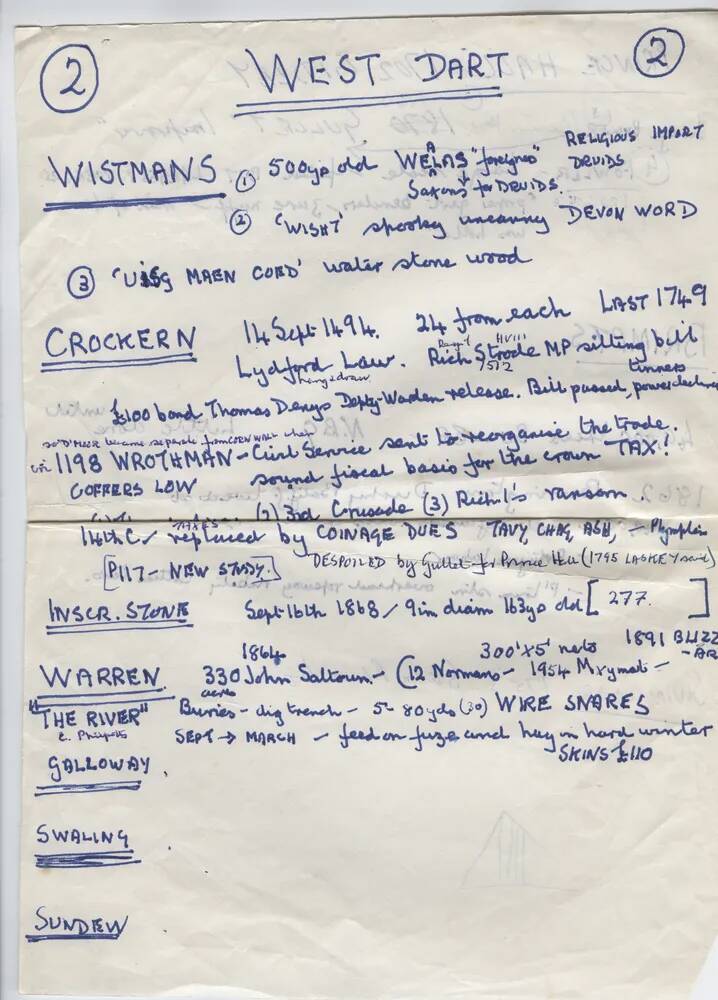 2 WEST DART 2
WISTMANS ① 500yo old WEALAS "foreigners" RELIGIOUS IMPORT
Saxons for DRUIDS. DRUIDS
② 'WISHT' spooky uncanny DEVON WORD
③ 'UISG MAEN COED' water stone wood
CROCKERN 14 Sept 1494. 24 from each LAST 1749
Lydford Law. Rich Strode MP sitting bull
hang & draw HVIII 1512 tinners
£100 bond Thomas Denys Depty Warden release. Bill passed, power declining
so D'MOOR became separate from CORNWALL
1198 WROTHMAN - Civil Service sent to reorganise the trade.
COFFERS LOW sound fiscal basis for the crown TAX!
3rd Crusade (3) Rich I's ransom.
14th C. TAXES replaced by COINAGE DUES TAVY, CHAG, ASH, - Plympton
[P117 - NEW STUDY.] DESPOILED by Gullet for Prince Hall (1795 LASKEY said)
INSCR. STONE Sept 16th 1868 / 9in diam 163yo old [277.]
1864 300'x5' nets 1891 BLIZZ
WARREN 330 John Saltoun - (12 Normans - 1954 Mxymat - -ARD
acres
"THE RIVER" Buries - dig trench - 5- 80yds (30) WIRE SNARES
E. Philpotts SEPT → MARCH - feed on fuze and hay in hard winter
GALLOWAY SKINS £110
SWALING
SUNDEW